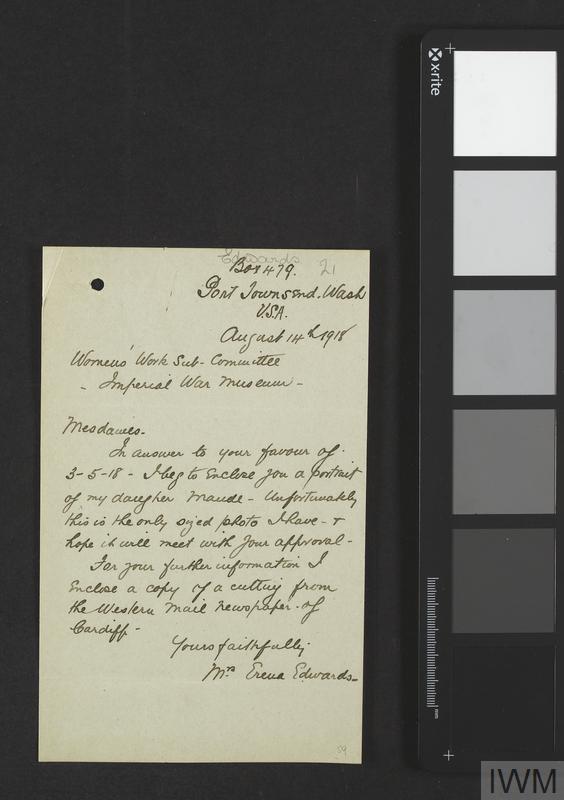 Edwards
21
Box 479.
Port Townsend. Wash
U.S.A.
August 14th 1918
Womens' Work Sub-Committee
- Imperial War Museum -
Mesdames-
In answer to your favour of.
3-5-18 - I beg to Enclose you a portrait
of my daugher Maude - Unfortunately
this is the only sized photo I have - +
hope it will meet with your approval -
For your further information I
Enclose a copy of a cutting from
the Western Mail newspaper - of
Cardiff -
Yours faithfully
Mrs Edwards -
59
x-rite
mm
IWM